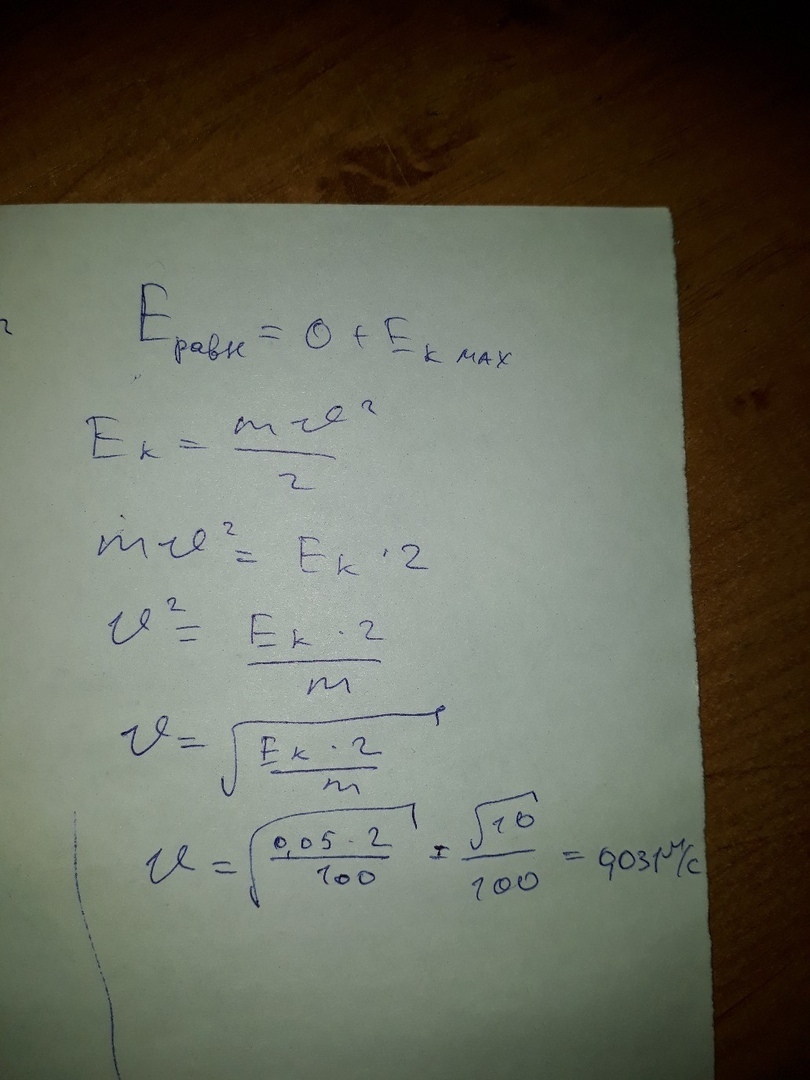 E равн = 0 + E к мах
Eк = mv² / 2
mv² = Eк · 2
v² = Eк · 2 / m
v = √(Eк · 2 / m)
v = √(0,05 · 2 / 100) = √10 / 100 = 0,031 м/с